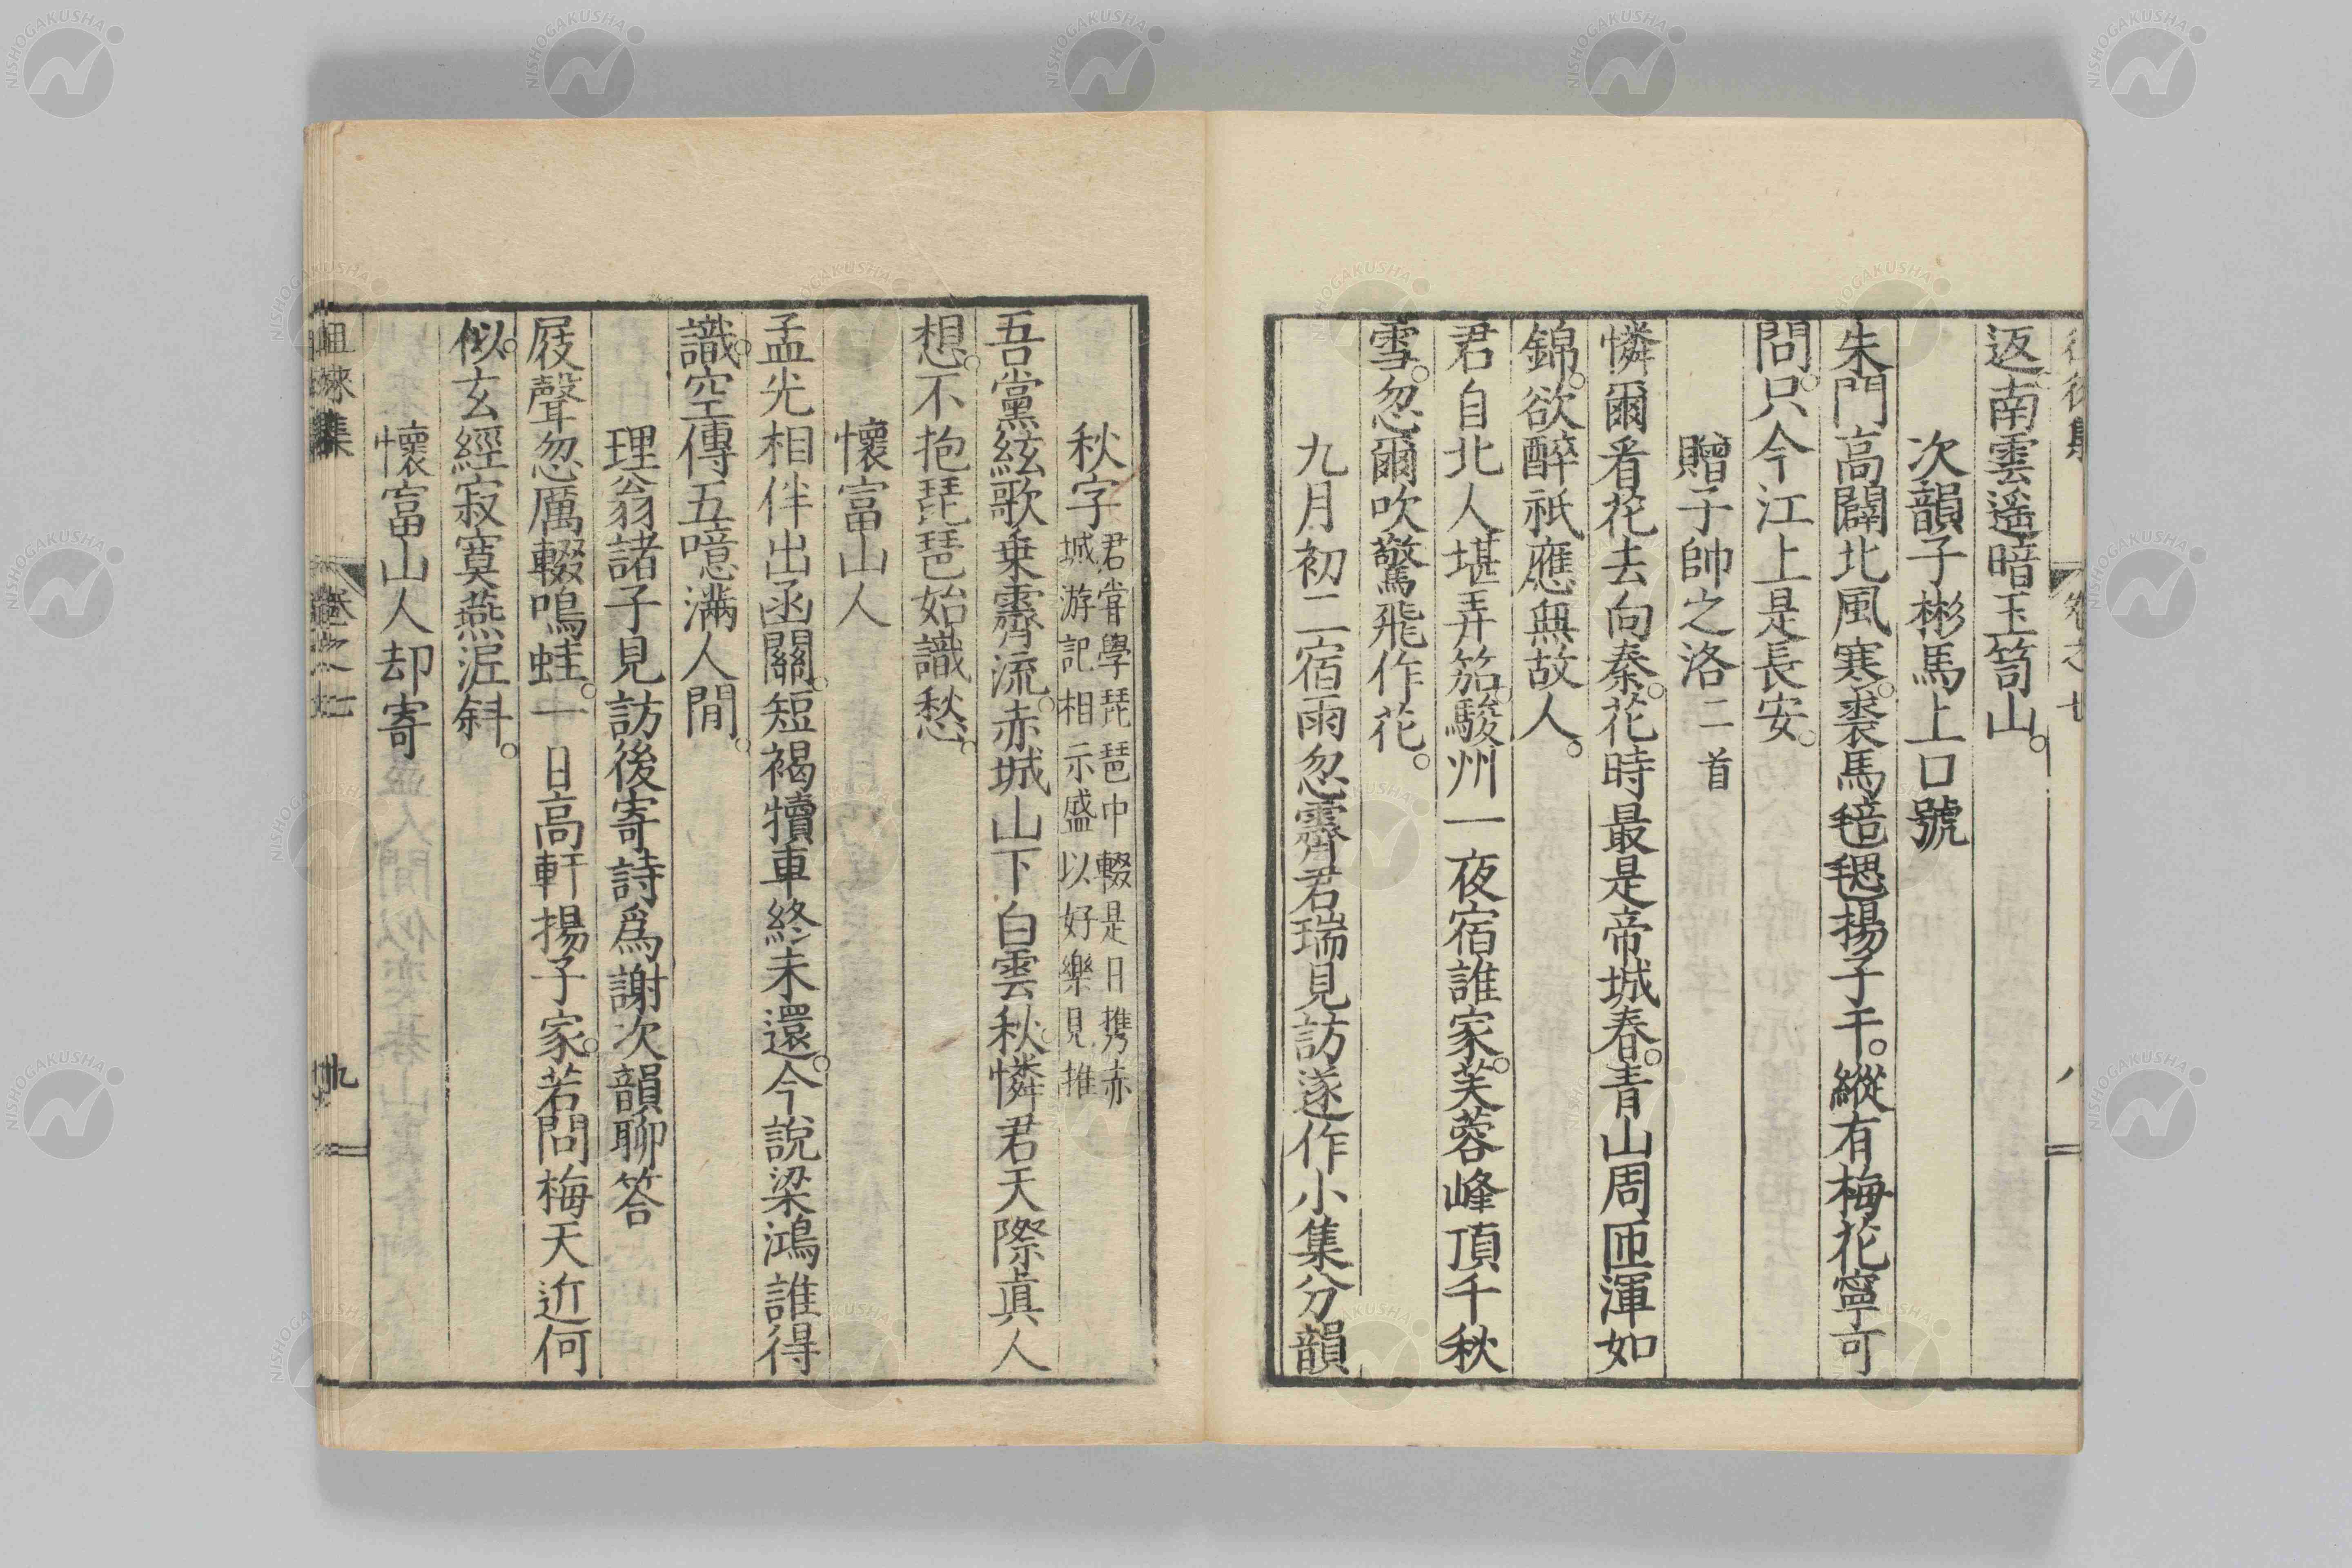 返南雲遥暗玉笥山。
次韻子彬馬上口號
朱門高闢北風寒。裘馬毰毸揚子干。縱有梅花寧可
問。只今江上是長安。
贈子帥之洛二首
憐爾看花去向秦。花時最是帝城春。青山周匝渾如
錦。欲醉祇應無故人。
君自北人堪弄笳。駿州一夜宿誰家。芙蓉峰頂千秋
雪。忽爾吹驚飛作花。
九月初二宿雨忽霽君瑞見訪遂作小集分韻
秋字君嘗學琵琶中輟是日携赤
城游記相示盛以好樂見推
吾黨絃歌乗霽流。赤城山下白雲秋。憐君天際眞人
想。不抱琵琶始識愁。
懷富山人
孟光相伴出函關。短褐犢車終未還。今說梁鴻誰得
識。空傳五噫滿人間。
理翁諸子見訪後寄詩爲謝次韻聊答
屐聲忽厲輟鳴蛙。一日高軒揚子家。若問梅天近何
似。玄經寂寞燕泥斜。
懷富山人却寄
徂徠集
卷之七
九